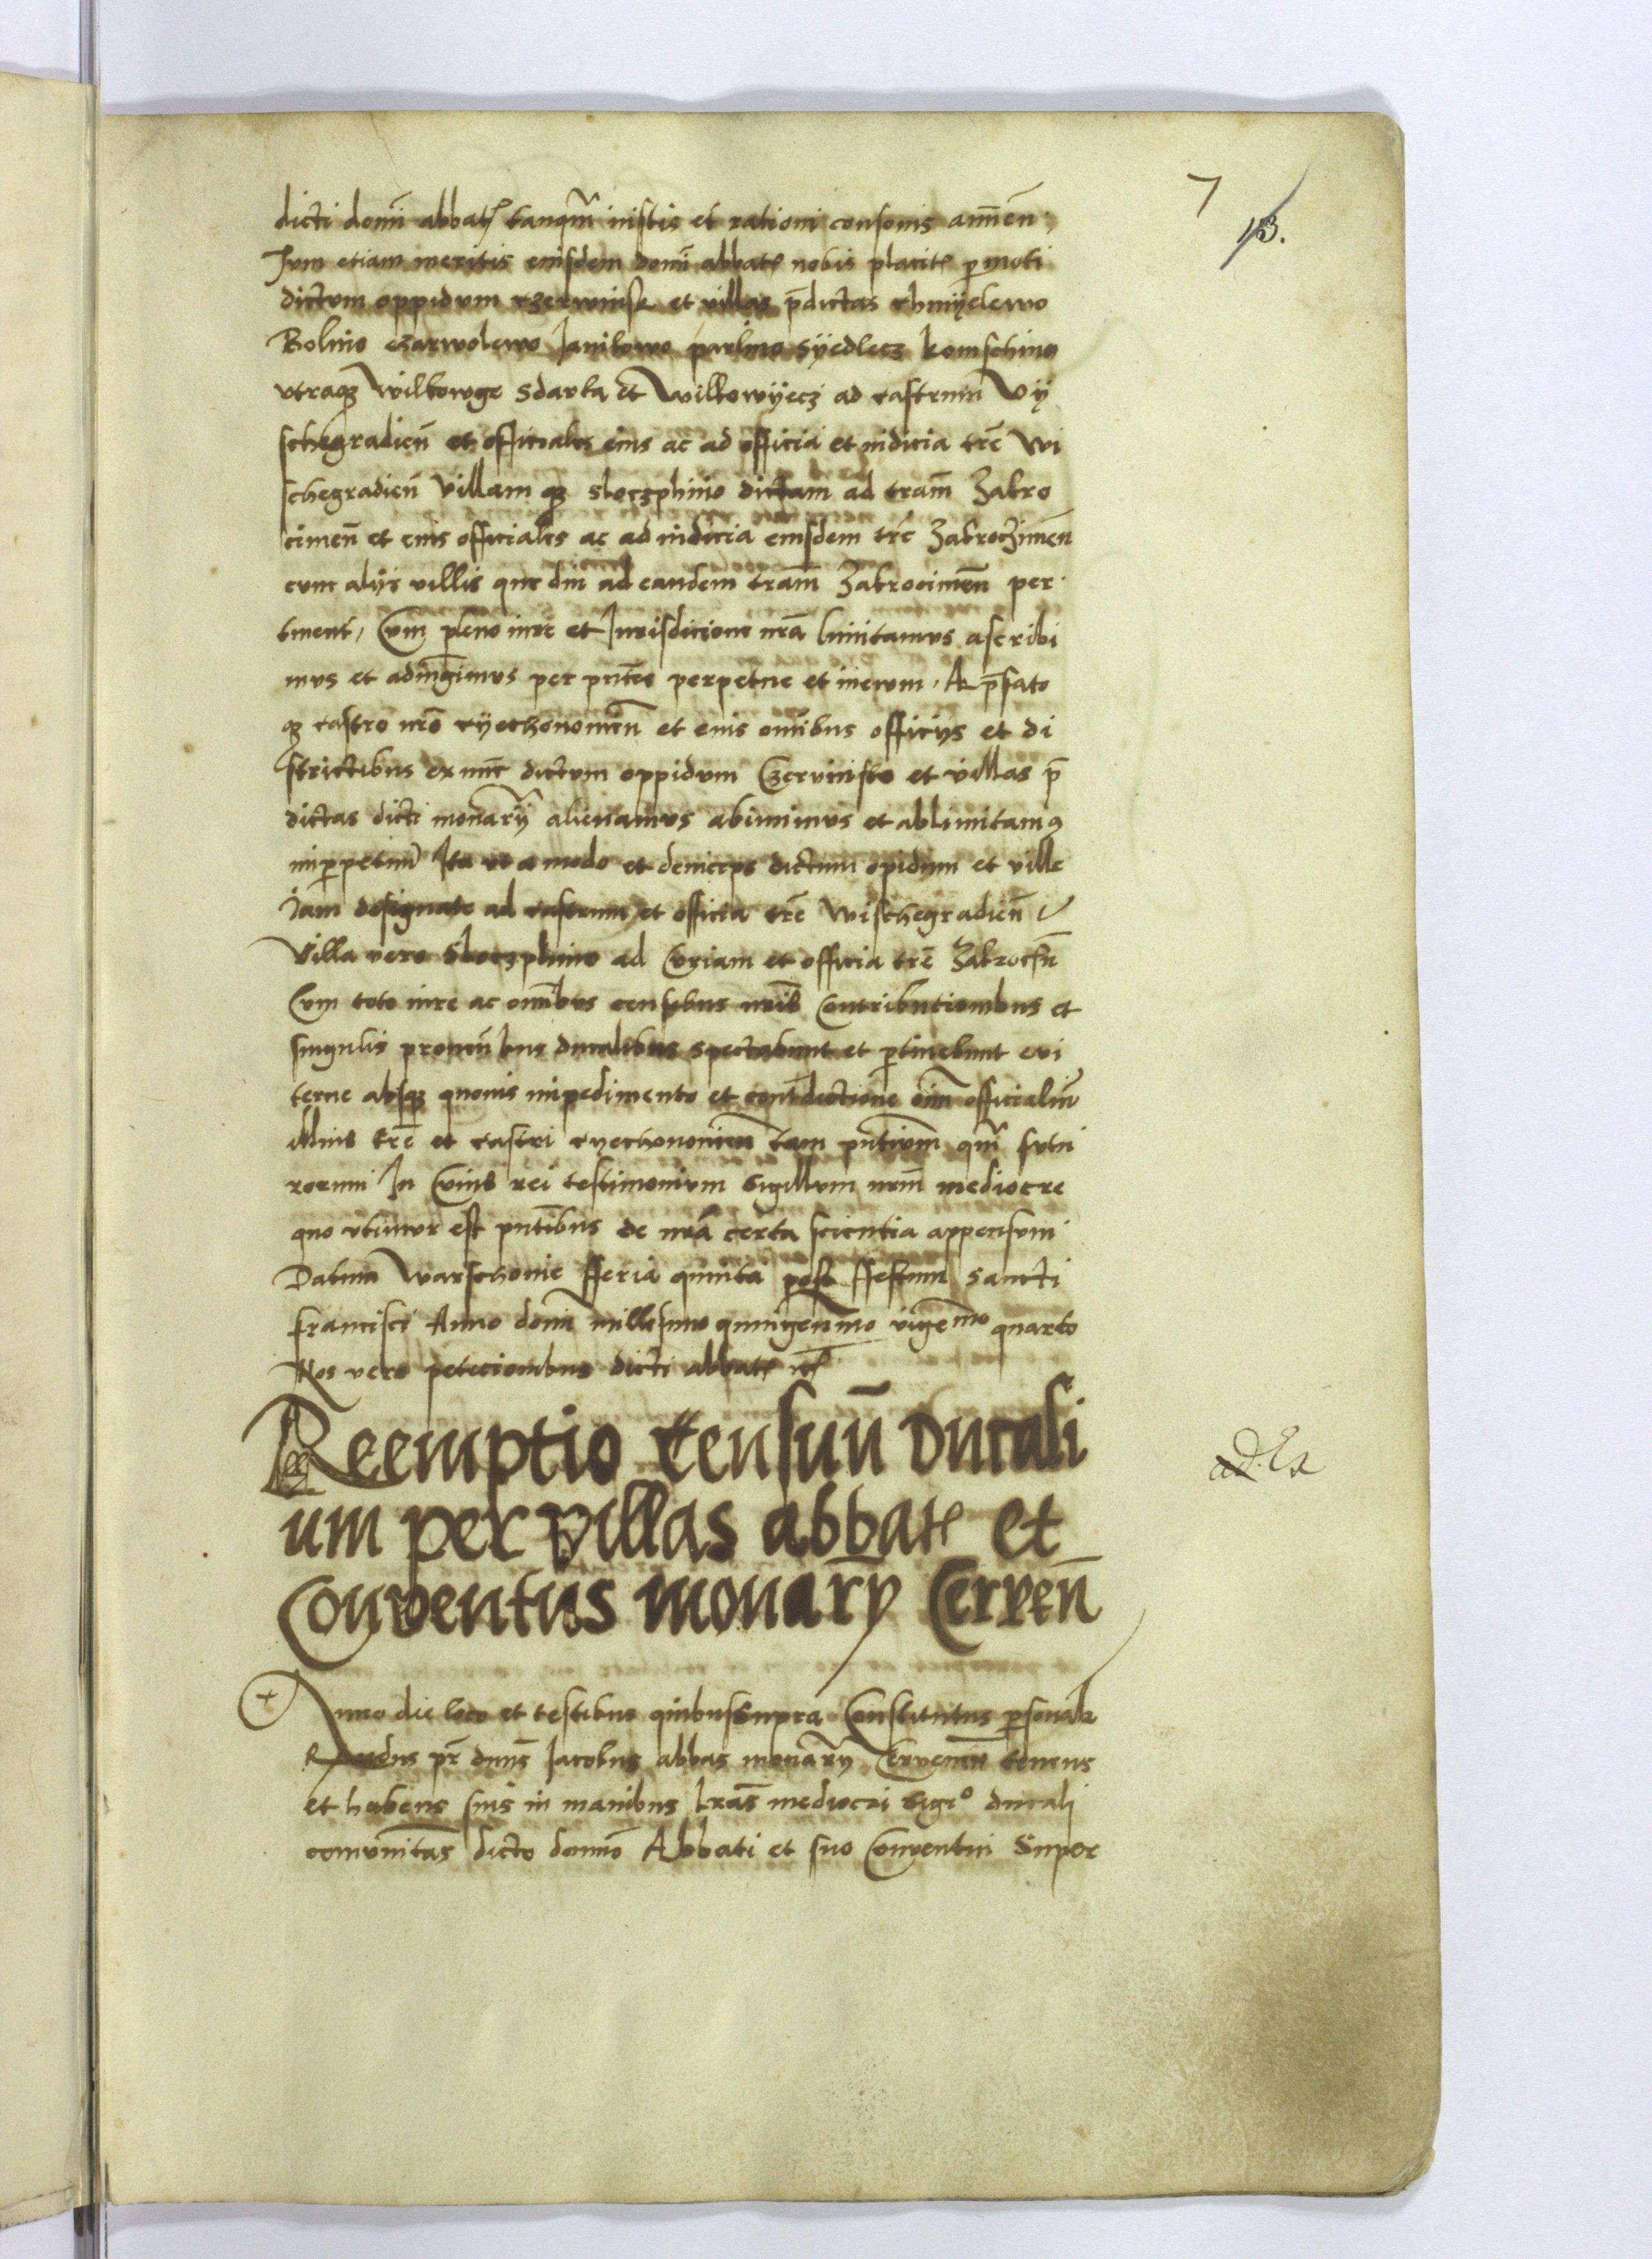 7
13.
dicti domi abbatꝭ tanqm iustis et rationi consonis annuen̄
Tum etiam meritis eiusdem domi abbatꝭ nobis placitꝭ ꝑmoti
dictum oppidum czerwinsk et villas p̄dictas chmyelewo
Bolino czarwolewo Janikowo parlino Syedlecz komschino
vtraqꝫ wilkowge Sdarka et wilkowyecz ad castrum Vy
schegradien̄ et officiales eius ac ad officia et iudicia trē wi
schegradien̄ villam qꝫ sloczphino dictam ad tram̄ Zakro
cimen̄ et eius officiales ac ad iudicia eiusdem trē Zakrocʒimen̄
cum alijs villis que diu ad eandem tram̄ Zakrocimen̄ per
tinent, Cum pleno iure et Jurisdicione nrā limitamus ascribi
mus et adiungimus per pn̄tes perpetue et in ewm. A p̄fato
qꝫ castro nrō cyechonomien̄ et eius omībus officijs et di
strictibus ex nūc dictum oppidum Czerwinsko et villas p̄
dictas dicti monar̄ij alienamus abiunimus et ablimitamꝰ
inꝑpetuū Ita vt a modo et deinceps dictum opidum et ville
Jam designate ad castrum et officia trē wischegradien̄
Villa vero sloczphino ad Curiam et officia trē Zakrocn̄
Cum toto iure ac omībus censibus nrīs Contributionibus et
singulis prouen̄tus ducalibus spectabunt et ꝑtinebunt evi
terne absqꝫ quouis impedimento et contradictione oīm officialiū
illius trē et castri cyechonomien̄ tam pn̄tium qm̄ futu
rorum In Cuius rei testimonium Sigillum nrm̄ mediocre
quo vtimur est pn̄tibus de nrā certa scientia appensum
Datum warschouie fferia quinta post ffestum sancti
francisci Anno domi millesimo quingen̄mo vigemo quarto
Nos vero peticionibus dicti abbatꝭ etc
Reemptio censuū Ducali
um per villas abbatꝭ et
Conventus monar̄y Cerven̄
ad Ex
Anno die loco et testibus quibus supra Constitutus ꝑsonalr
Rndus pr̄ dnūs Jacobus abbas monar̄y Cerwenen̄ tenens
et habens suis in manibus lrās mediocri sigo ducali
comunitas dicto domō Abbati et suo Conventui Super